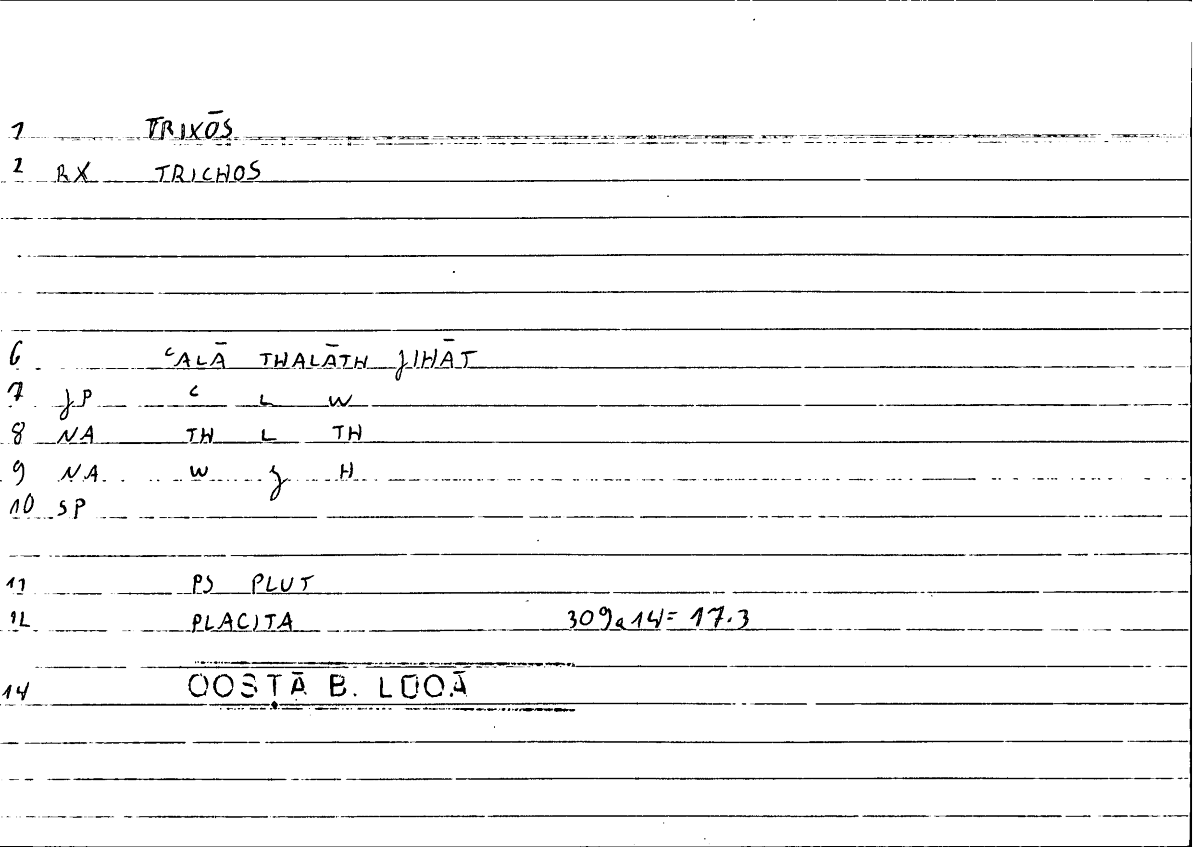 1 TRIXŌS
2 RX TRICHOS
6 ʿALĀ THALĀTH JIHĀT
7 JP ʿ L W
8 NA TH L TH
9 NA W J H
10 SP
11 PS PLUT
12 PLACITA 309a14= 17.3
14 QOSṬĀ B. LŪQĀ